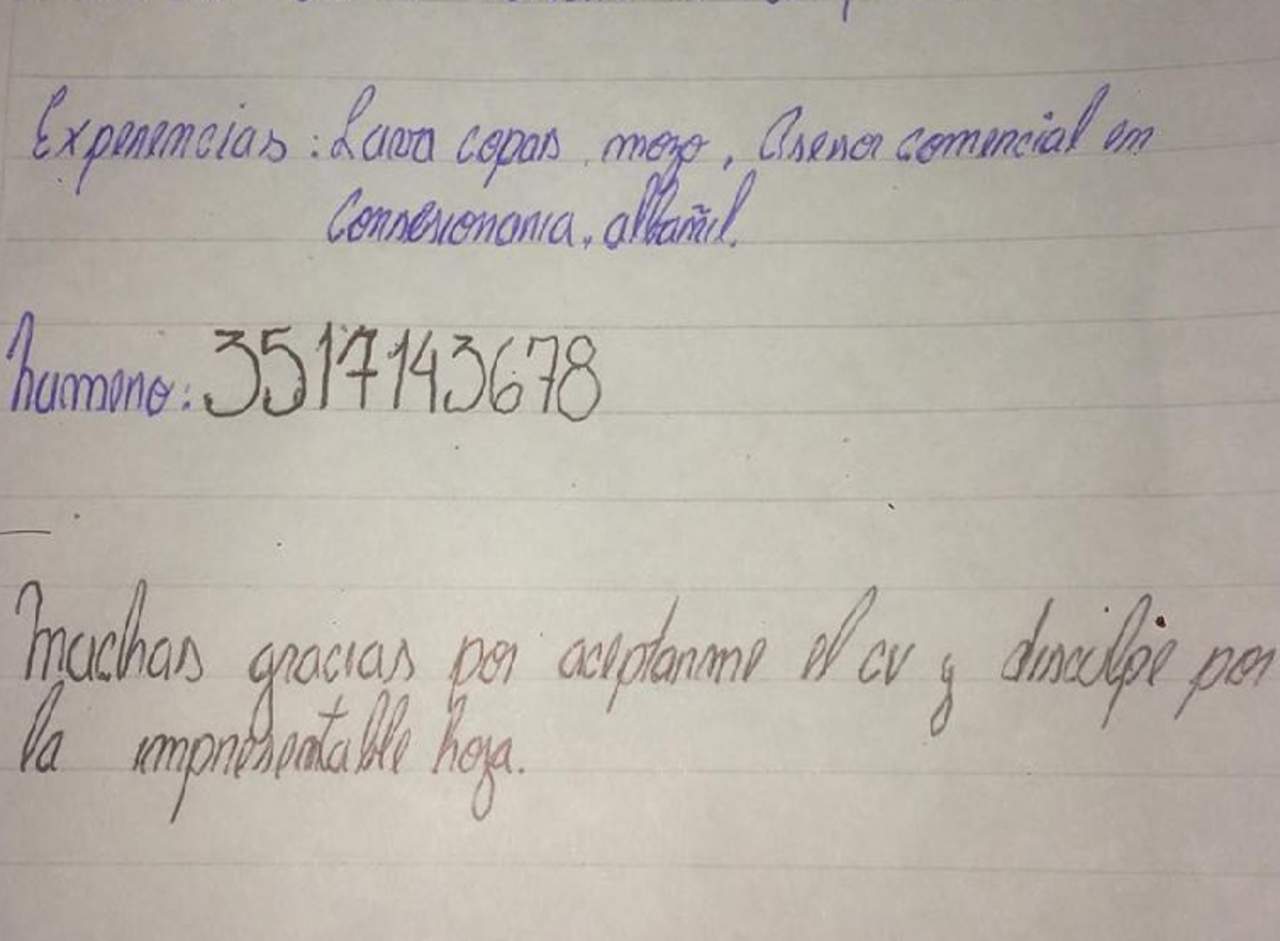 Experiencias: Lava copas, mozo, Asesor comercial en
Consesionaria, albañil.
numero: 3517143678
muchas gracias por aceptarme el cv y disculpe por
la impresentable hoja.